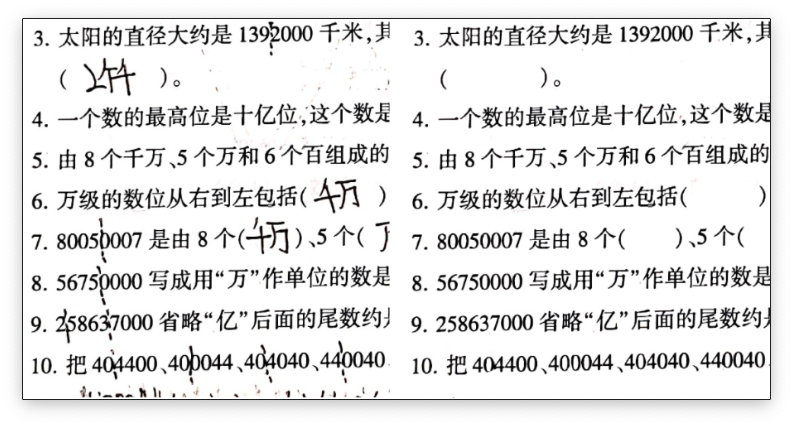 3. 太阳的直径大约是 1392000 千米,其
( )。
4. 一个数的最高位是十亿位,这个数是
5. 由 8 个千万、5 个万和 6 个百组成的
6. 万级的数位从右到左包括( 千万 )
7. 80050007 是由 8 个(千万)、5 个(
8. 56750000 写成用“万”作单位的数是
9. 258637000 省略“亿”后面的尾数约
10. 把 404400、400044、404040、440040
3. 太阳的直径大约是 1392000 千米,其
( )。
4. 一个数的最高位是十亿位,这个数是
5. 由 8 个千万、5 个万和 6 个百组成的
6. 万级的数位从右到左包括( )
7. 80050007 是由 8 个( )、5 个(
8. 56750000 写成用“万”作单位的数是
9. 258637000 省略“亿”后面的尾数约
10. 把 404400、400044、404040、440040